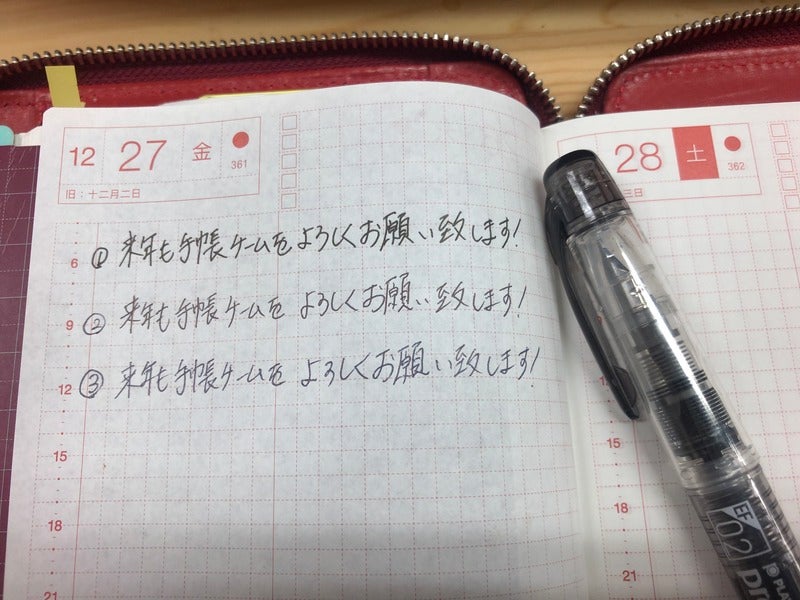 12 27 金
361
旧：十二月二日
6
① 来年も手帳ゲームをよろしくお願い致します！
9
② 来年も手帳ゲームを よろしくお願い致します！
12
③ 来年も手帳ゲームを よろしくお願い致します！
15
18
21
28 土
362
三日
15
18
21
EF
02